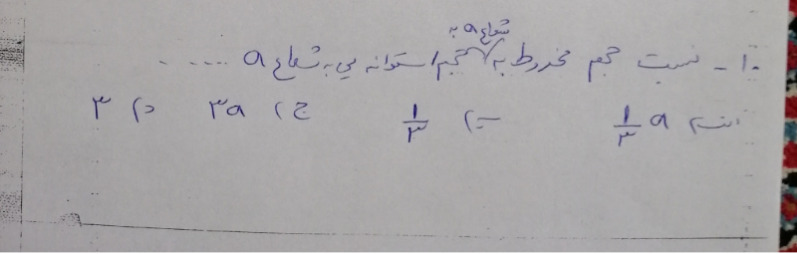 شعاع a به
۱۰ - نسبت حجم مخروط به حجم استوانه ی به شعاع a .....
الف) ۱/۳ a ب) ۱/۳ ج) ۳a د) ۳